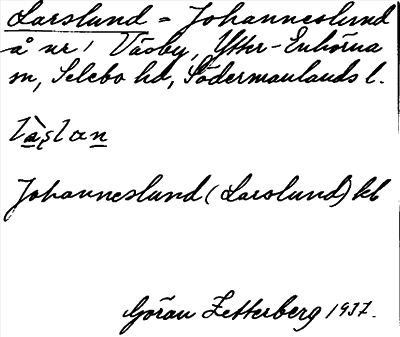 Larslund = Johanneslund
å nr 1 Väsby, Ytter-Enhörna
sn, Selebo hd, Södermanlands l.
làs̨lan
Johanneslund (Larslund) kb
Göran Zetterberg 1937.